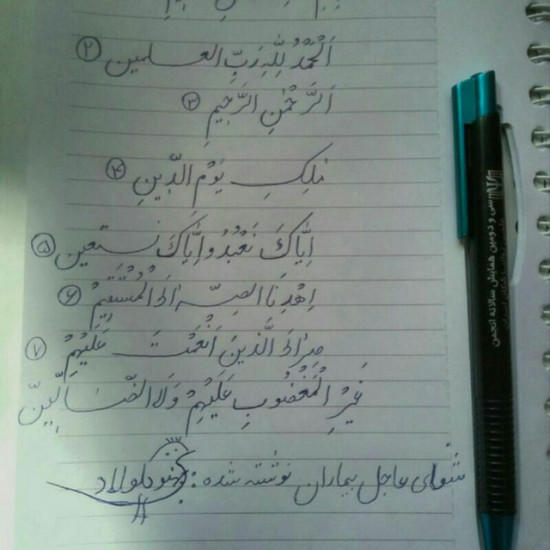 اَلْحَمْدُ لِلّٰهِ رَبِّ العـلمین ②
اَلرَّحْمٰنِ الرَّحِیمِ ③
مٰلِکِ یَوْمِ الدّینِ ④
اِیّاکَ نَعْبُدُ وَ اِیّاکَ نَستعین ⑤
اِهْدِنَا الصِّـرٰاطَ الْمُسْتَقیمَ ⑥
صِرٰاطَ الَّذینَ اَنْعَمْتَ عَلَیْهِمْ ⑦
غَیْرِ الْمَغْضُوبِ عَلَیْهِمْ وَلَا الضّـٰالّینَ
شفای عاجل بیماران نوشته شده :
سی و دومین همایش سالانه انجمن